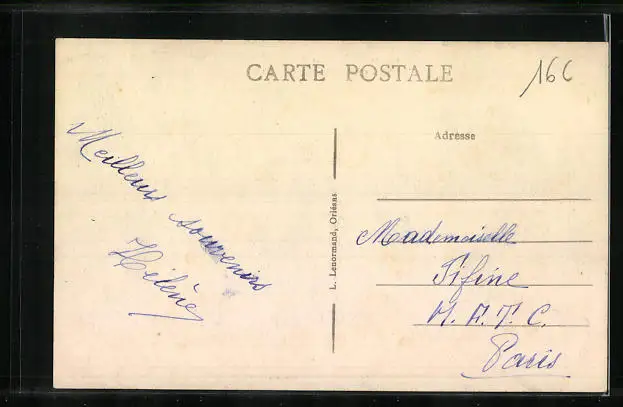 CARTE POSTALE
16C
Meilleurs souvenirs
Hélène
L. Lenormand, Orléans
Adresse
Mademoiselle
Fifine
T. C.
Paris